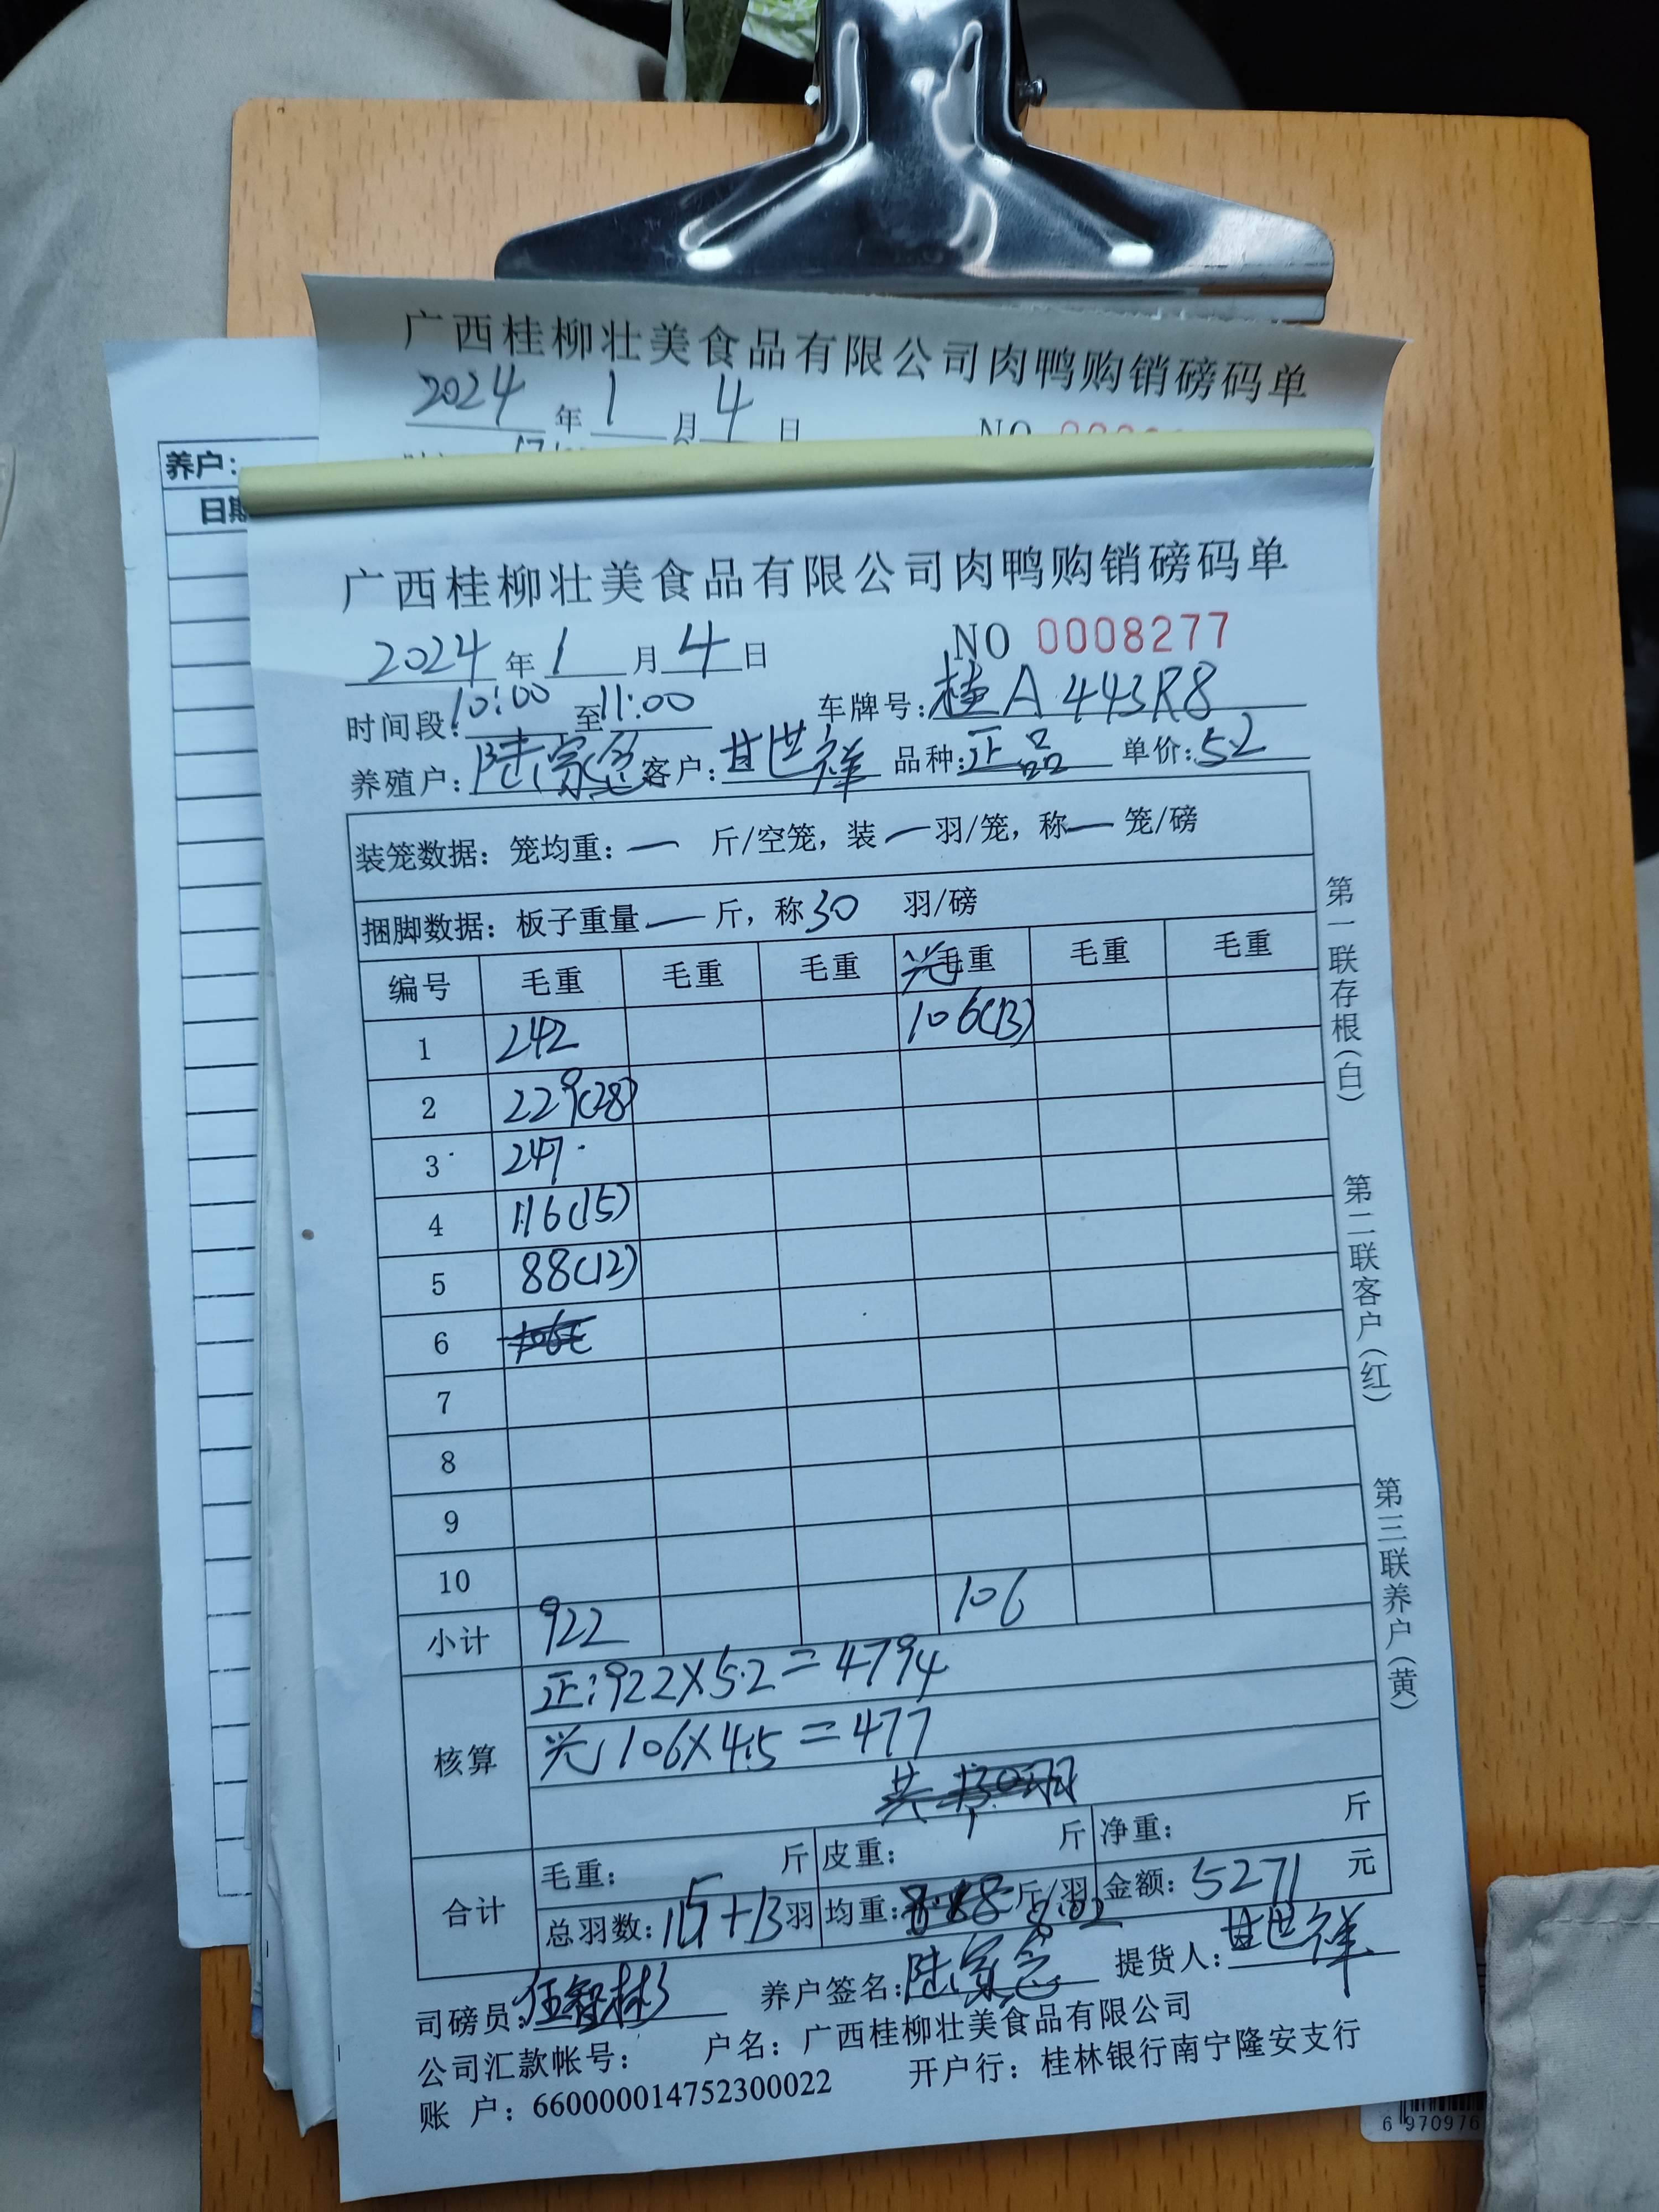 广西桂柳壮美食品有限公司肉鸭购销磅码单
2024年1月4日 NO
养户:
日期
广西桂柳壮美食品有限公司肉鸭购销磅码单
2024年1月4日 NO 0008277
时间段:10:00至11:00 车牌号:桂A443R8
养殖户:陆家念 客户:甘世祥 品种:正品 单价:5.2
装笼数据: 笼均重:一 斤/空笼, 装一羽/笼, 称一笼/磅
捆脚数据: 板子重量一斤, 称30 羽/磅
编号 毛重 毛重 毛重 毛重 毛重 毛重
1 242 106(13)
2 229(28)
3 247
4 116(15)
5 88(12)
6
7
8
9
10
小计 922 106
核算
正:922×5.2=4794
106×4.5=477
共
合计
毛重: 斤 皮重: 斤 净重: 斤
总羽数:115+13羽 均重: 斤/羽 8.02 金额:5271 元
司磅员: 养户签名:陆家念 提货人:甘世祥
公司汇款帐号: 户名:广西桂柳壮美食品有限公司
账 户:660000014752300022 开户行:桂林银行南宁隆安支行
第一联存根(白)
第二联客户(红)
第三联养户(黄)
6 970976